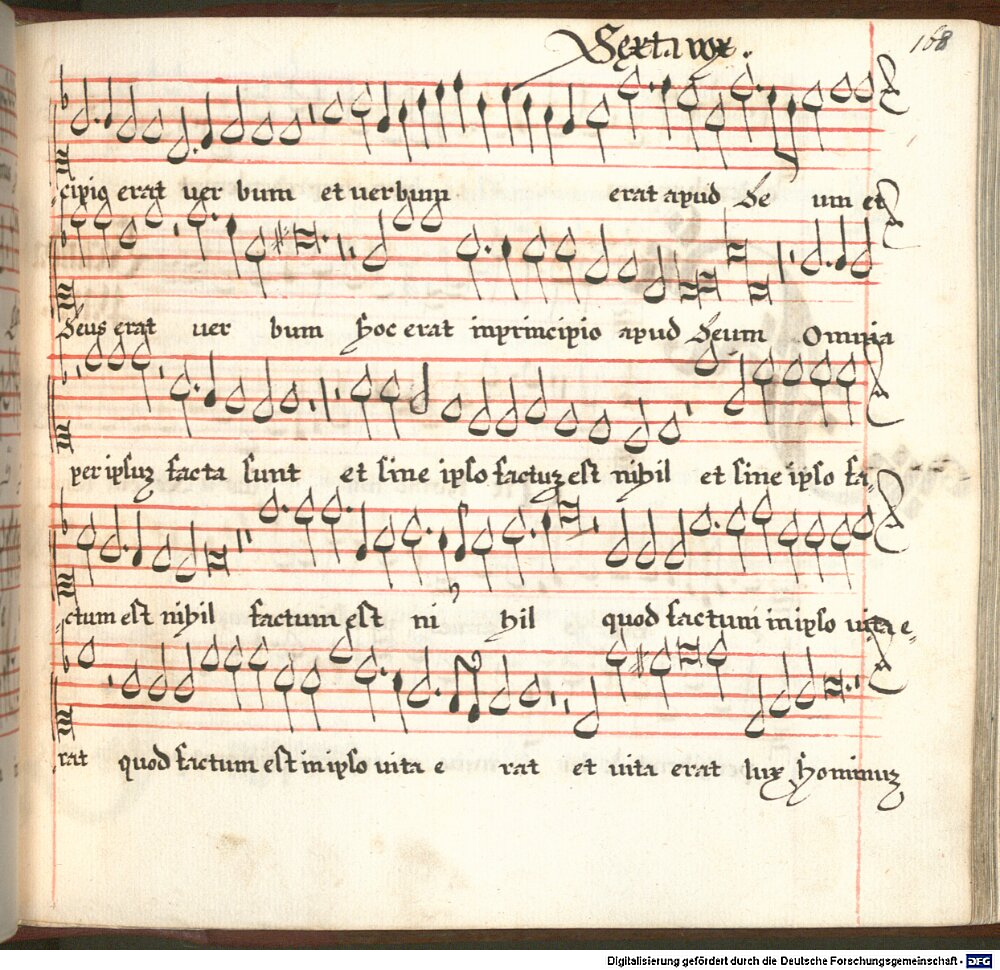 Sexta vox.
168
cipiq erat uer bum et uerbum erat apud De um et
Deus erat uer bum Hoc erat inprincipio apud Deum Omnia
per ipsuz facta sunt et sine ipso factuz est nihil et sine ipso fa-
ctum est nihil factum est ni hil quod factum in ipso uita e-
rat quod factum est in ipso uita e rat et uita erat lux hominuz
Digitalisierung gefördert durch die Deutsche Forschungsgemeinschaft - DFG